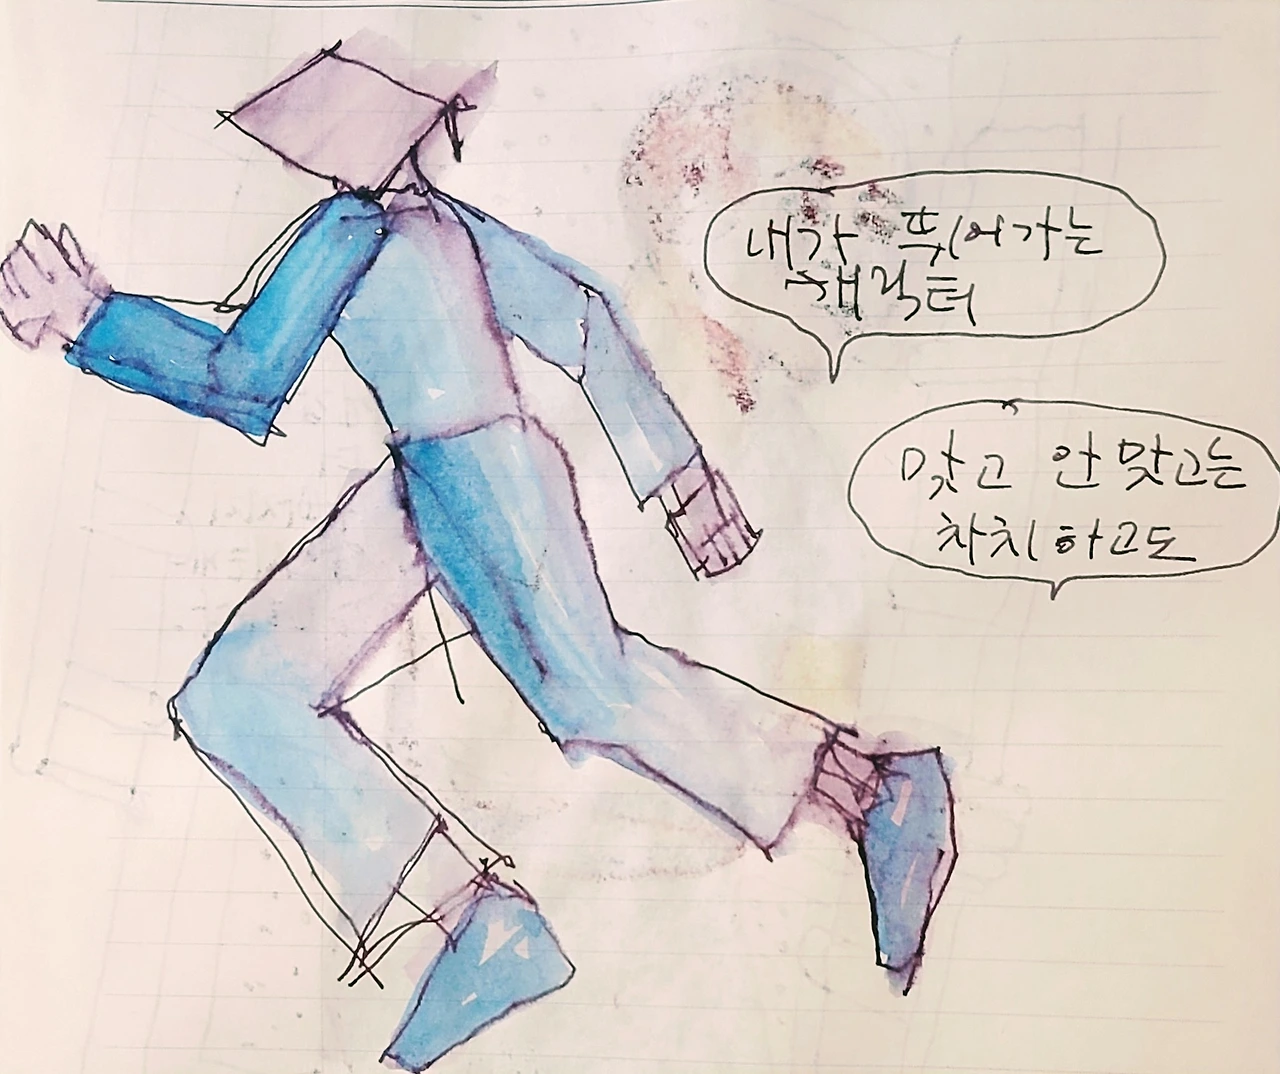 내가 뛰어가는
캐릭터
맞고 안맞고는
차치하고도